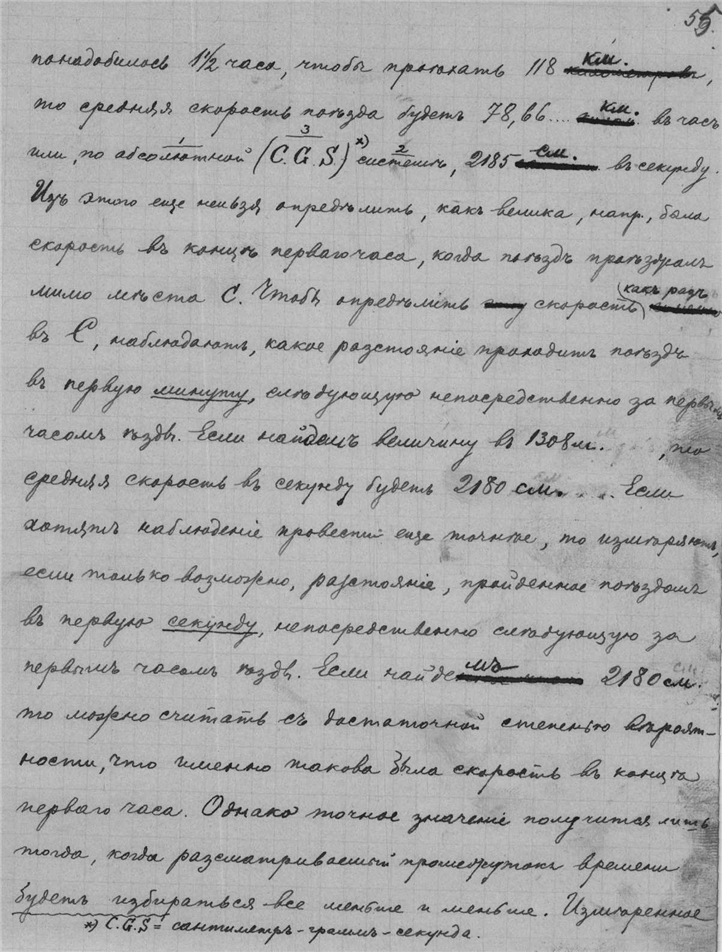 55.
понадобилось 1 1/2 часа, чтобы проѣхать 118 км.,
то средняя скорость поѣзда будетъ 78,66... км. въ часъ
или, по абсолютной (C.G.S.)*) системѣ, 2185 см. въ секунду.
Изъ этого еще нельзя опредѣлить, какъ велика, напр., была
скорость въ концѣ перваго часа, когда поѣздъ проѣзжалъ
мимо мѣста С. Чтобы опредѣлить скорость (какъ разъ
въ С, наблюдаютъ, какое разстояніе проходитъ поѣздъ
въ первую минуту, слѣдующую непосредственно за первымъ
часомъ ѣзды. Если найдемъ величину въ 1308 м., то
средняя скорость въ секунду будетъ 2180 см. . . . Если
хотятъ наблюденіе провести еще точнѣе, то измѣряютъ,
если только возможно, разстояніе, пройденное поѣздомъ
въ первую секунду, непосредственно слѣдующую за
первымъ часомъ ѣзды. Если найдемъ 2180 см.
то можно считать съ достаточной степенью вѣроят-
ности, что именно такова была скорость въ концѣ
перваго часа. Однако точное значеніе получится лишь
тогда, когда разсматриваемый промежутокъ времени
будетъ избираться все меньше и меньше. Измѣренное
*) C.G.S = сантиметръ-граммъ-секунда.